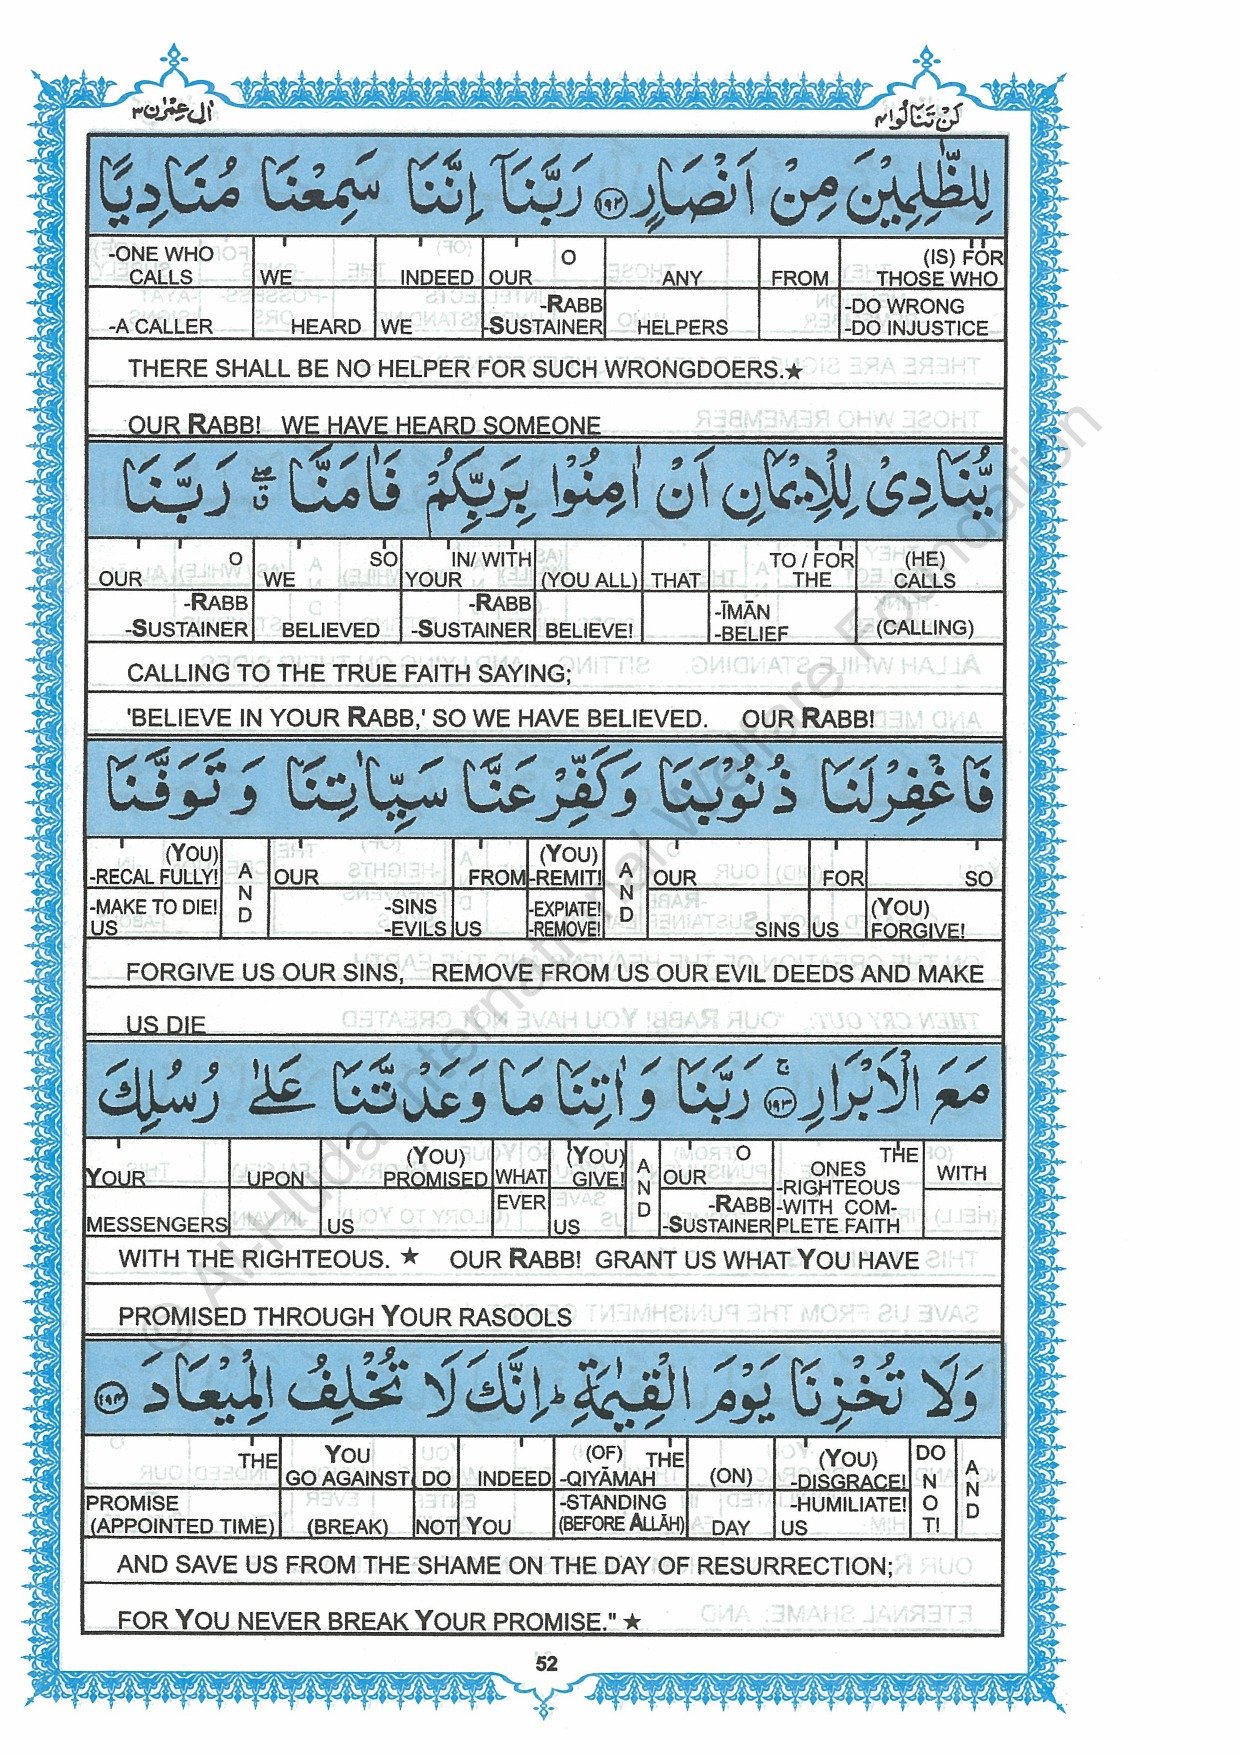 اٰل عِمْرٰن ٣
لَنْ تَنَالُوا ٤
لِلظّٰلِمِيْنَ مِنْ اَنْصَارٍ ﴿١٩٢﴾ رَبَّنَاۤ اِنَّنَا سَمِعْنَا مُنَادِيًا
-ONE WHO CALLS WE INDEED OUR O ANY FROM (IS) FOR THOSE WHO
-A CALLER HEARD WE -RABB -SUSTAINER HELPERS -DO WRONG -DO INJUSTICE
THERE SHALL BE NO HELPER FOR SUCH WRONGDOERS.★
OUR RABB! WE HAVE HEARD SOMEONE
يُّنَادِىْ لِلْاِيْمَانِ اَنْ اٰمِنُوْا بِرَبِّكُمْ فَاٰمَنَّا ۖق رَبَّنَا
OUR O WE SO YOUR IN/ WITH (YOU ALL) THAT TO / FOR THE (HE) CALLS
-RABB -SUSTAINER BELIEVED -RABB -SUSTAINER BELIEVE! -ĪMĀN -BELIEF (CALLING)
CALLING TO THE TRUE FAITH SAYING;
'BELIEVE IN YOUR RABB,' SO WE HAVE BELIEVED. OUR RABB!
فَاغْفِرْلَنَا ذُنُوْبَنَا وَكَفِّرْعَنَّا سَيِّاٰتِنَا وَتَوَفَّنَا
(YOU) -RECAL FULLY! AND OUR FROM (YOU) -REMIT! AND OUR FOR SO
-MAKE TO DIE! US -SINS -EVILS US -EXPIATE! -REMOVE! SINS US (YOU) FORGIVE!
FORGIVE US OUR SINS, REMOVE FROM US OUR EVIL DEEDS AND MAKE
US DIE
مَعَ الْاَبْرَارِ ۚ ﴿١٩٣﴾ رَبَّنَا وَاٰتِنَا مَا وَعَدْتَّنَا عَلٰى رُسُلِكَ
YOUR UPON (YOU) PROMISED WHAT (YOU) GIVE! AND OUR O THE ONES WITH
MESSENGERS US EVER US -RABB -SUSTAINER -RIGHTEOUS -WITH COM- PLETE FAITH
WITH THE RIGHTEOUS. ★ OUR RABB! GRANT US WHAT YOU HAVE
PROMISED THROUGH YOUR RASOOLS
وَلَا تُخْزِنَا يَوْمَ الْقِيٰمَةِ ؕ اِنَّكَ لَا تُخْلِفُ الْمِيْعَادَ ﴿١٩٤﴾
THE YOU GO AGAINST DO INDEED (OF) THE -QIYĀMAH (ON) (YOU) -DISGRACE! DO NOT! AND
PROMISE (APPOINTED TIME) (BREAK) NOT YOU -STANDING (BEFORE ALLĀH) DAY -HUMILIATE! US
AND SAVE US FROM THE SHAME ON THE DAY OF RESURRECTION;
FOR YOU NEVER BREAK YOUR PROMISE." ★
52
© Al-Huda International Welfare Foundation